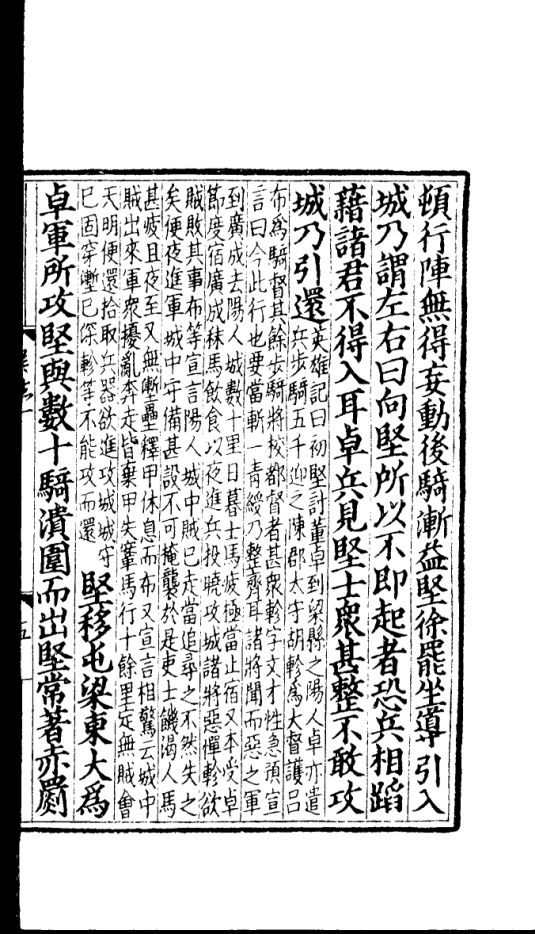 頓行陣無得妄動後騎漸益堅徐罷坐導引入
城乃謂左右曰向堅所以不即起者恐兵相蹈
藉諸君不得入耳卓兵見堅士衆甚整不敢攻
城乃引還
英雄記曰初堅討董卓到梁縣之陽人卓亦遣
兵步騎五千迎之陳郡太守胡軫爲大督護呂
布爲騎督其餘步騎將校都督者甚衆軫字文才性急預宣
言曰今此行也要當斬一青綬乃整齊耳諸將聞而惡之軍
到廣成去陽人城數十里日暮士馬疲極當止宿又本受卓
節度宿廣成秣馬飲食以夜進兵投曉攻城諸將惡憚軫欲
賊敗其事布等宣言陽人城中賊已走當追尋之不然失之
矣便夜進軍城中守備甚設不可掩襲於是吏士饑渴人馬
甚疲且夜至又無壍壘釋甲休息而布又宣言相驚云城中
賊出來軍衆擾亂奔走皆棄甲失鞌馬行十餘里定無賊會
天明便還拾取兵器欲進攻城城守
已固穿壍已深軫等不能攻而還
堅移屯梁東大爲
卓軍所攻堅與數十騎潰圍而出堅常著赤罽